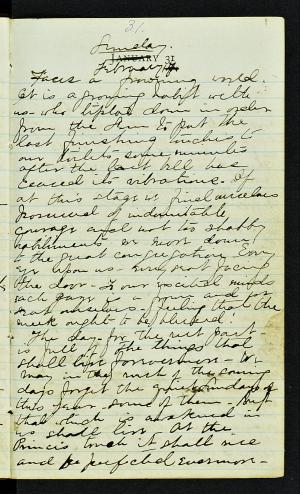 31
Sunday.
JANUARY 31
February 7
Faces a frowning world.
It is a growing habit with
us who tiptoe down in
from the Gym to put the
last finishing touches to
our toilets some minutes
after the last bell has
ceased its vibrations. If
at this stage
possessed of indomitable
courage and not too shabby
habiliments we move down
to the great congregation. Every
eye upon us
the door. To our excited minds
each gaze is a frown and
ourselves feeling that the
meek ought to be blessed.
The day for the most part
is full of the things that
shall live forevermore. We
may in the rush of the coming
days forget the quiet Sundays of
this year some of them. But
that which is awakened in
us shall live. At the
Princes touch it shall rise
and be perfected evermore.